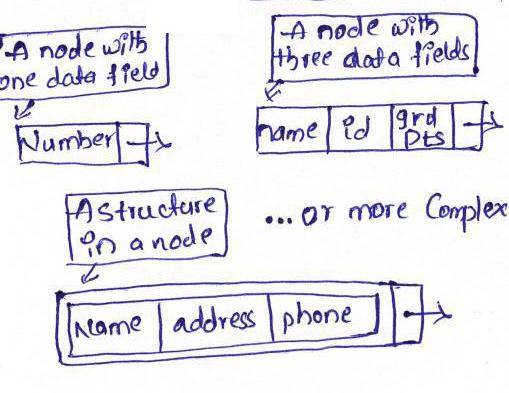 A node with
one data field
Number
A node with
three data fields
name id grd
pts
A structure
in a node
...or more Complex
Name address phone